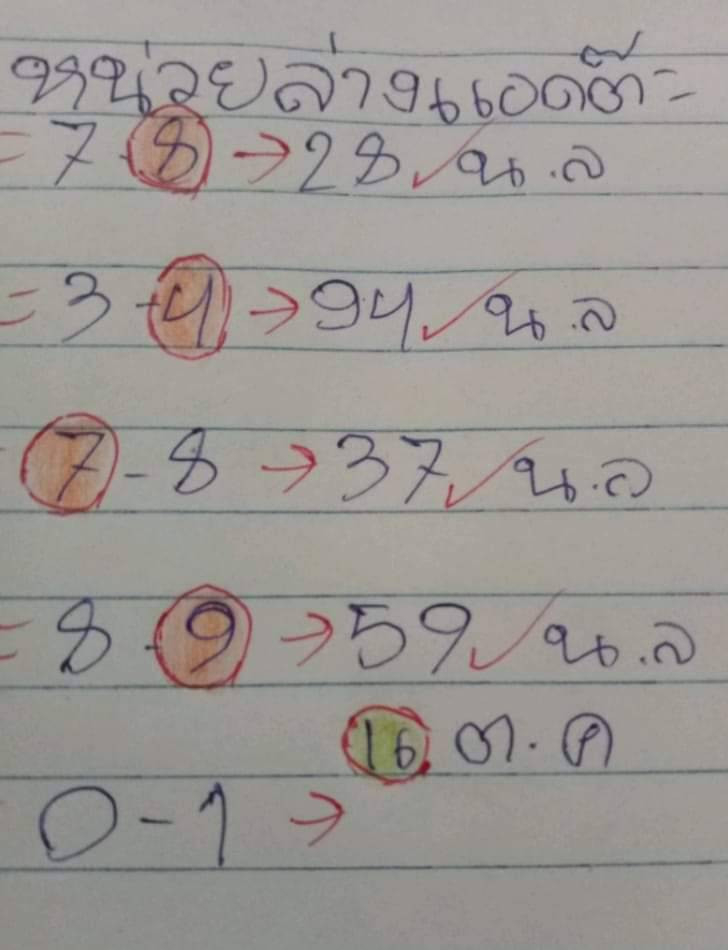 หน่วยล่างแอดต๊ะ
= 7 - 8 → 28 ✓ น.ล
= 3 - 4 → 94 ✓ น.ล
7 - 8 → 37 ✓ น.ล
= 8 - 9 → 59 ✓ น.ล
16 ต.ค
0 - 1 →